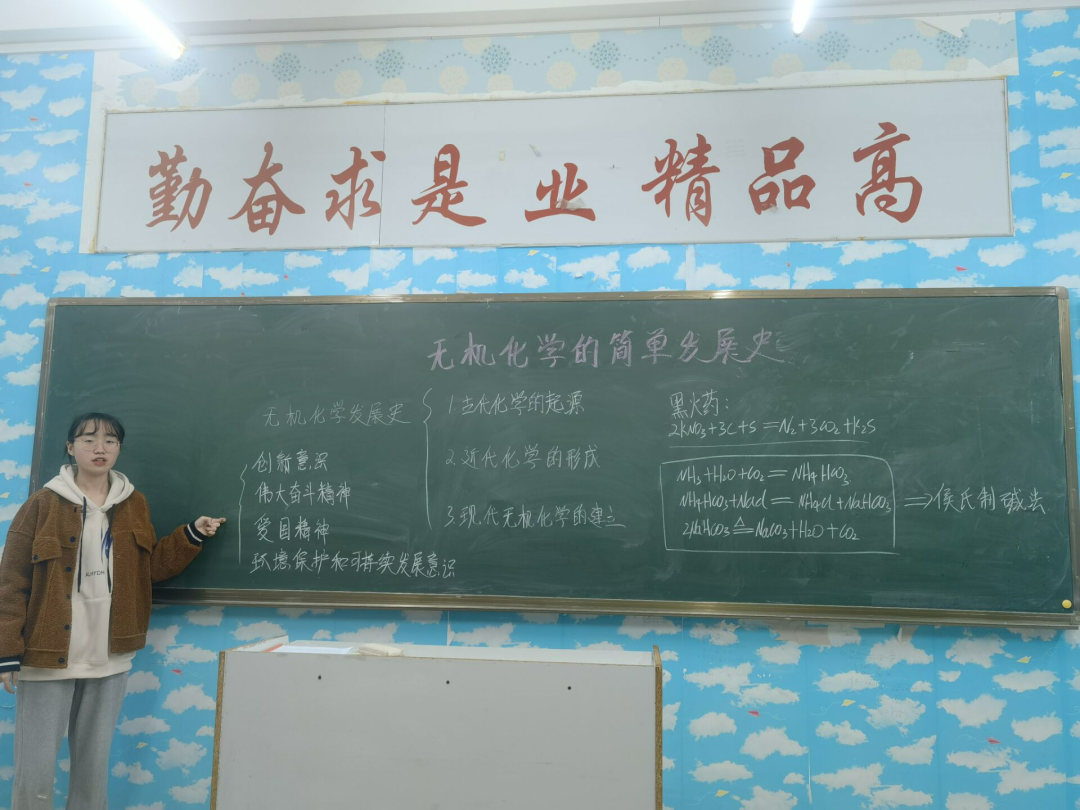 勤奋求是业精品高
无机化学的简单发展史
无机化学发展史
1.古代化学的起源
2.近代化学的形成
3.现代无机化学的建立
创新意识
伟大奋斗精神
爱国精神
环境保护和可持续发展意识
黑火药:
2KNO₃+3C+S=N₂+3CO₂+K₂S
NH₃+H₂O+CO₂=NH₄HCO₃
NH₄HCO₃+NaCl=NH₄Cl+NaHCO₃
2NaHCO₃≜Na₂CO₃+H₂O+CO₂
⇒侯氏制碱法